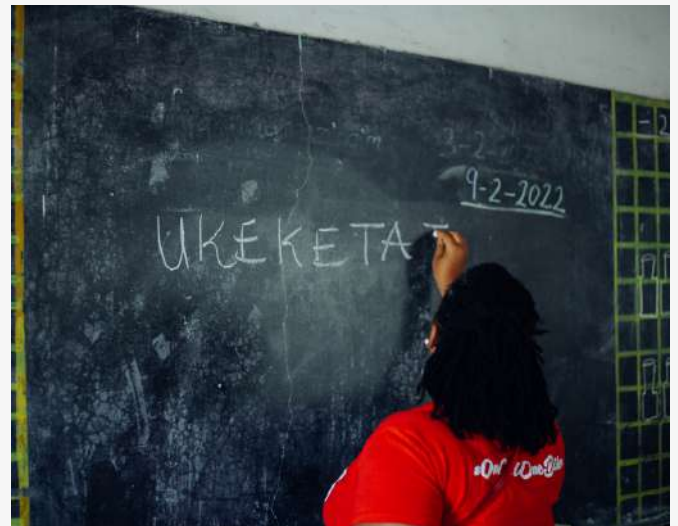 9-2-2022
UKEKETA